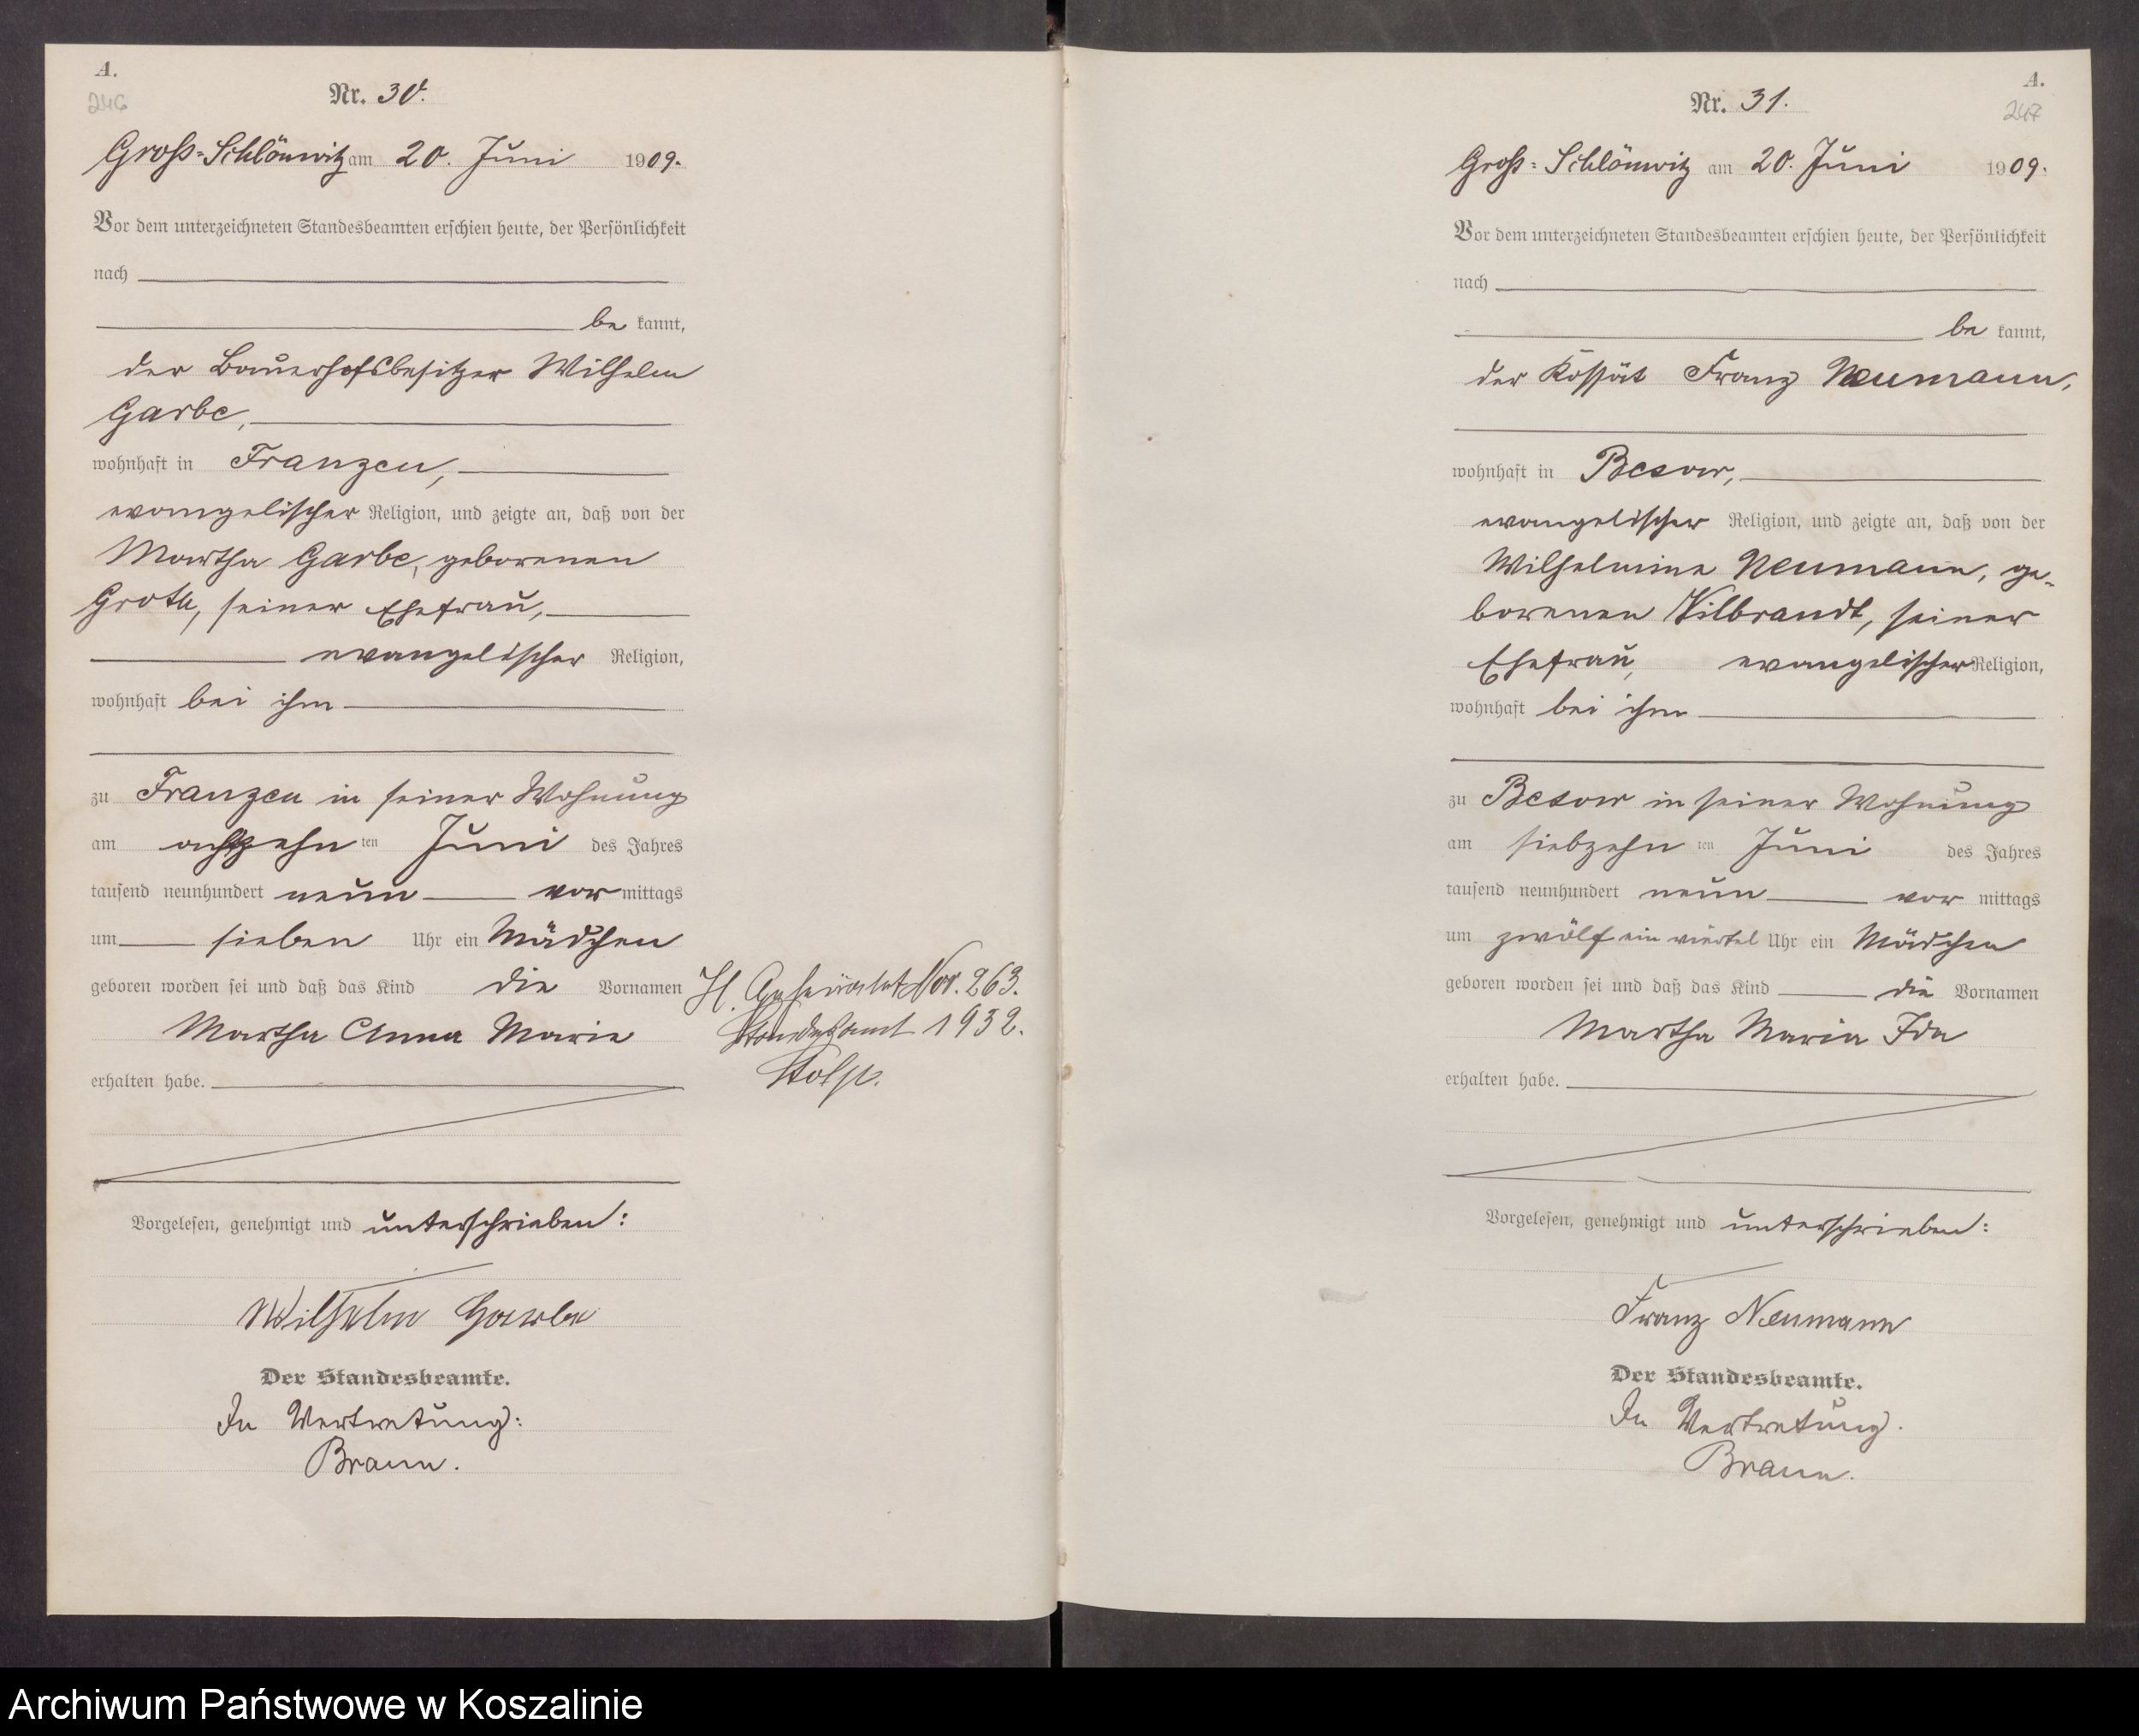 A.
246
Nr. 30.
Groß-Schlönwitz am 20. Juni 1909.
Vor dem unterzeichneten Standesbeamten erschien heute, der Persönlichkeit
nach
be kannt,
der Bauerhofsbesitzer Wilhelm
Garbe,
wohnhaft in Franzen,
evangelischer Religion, und zeigte an, daß von der
Martha Garbe, geborenen
Groth, seiner Ehefrau,
evangelischer Religion,
wohnhaft bei ihm
zu Franzen in seiner Wohnung
am achtzehn ten Juni des Jahres
tausend neunhundert neun vor mittags
um sieben Uhr ein Mädchen
geboren worden sei und daß das Kind die Vornamen
Martha Anna Marie
erhalten habe.
Vorgelesen, genehmigt und unterschrieben:
Wilhelm Garbe
Der Standesbeamte.
In Vertretung:
Braun.
H. Geheiratet Nr. 263.
Standesamt 1932.
Stolp.
A.
247
Nr. 31.
Groß-Schlönwitz am 20. Juni 1909.
Vor dem unterzeichneten Standesbeamten erschien heute, der Persönlichkeit
nach
be kannt,
der Kossät Franz Neumann,
wohnhaft in Besow,
evangelischer Religion, und zeigte an, daß von der
Wilhelmine Neumann, ge-
borenen Vilbrandt, seiner
Ehefrau, evangelischer Religion,
wohnhaft bei ihm
zu Besow in seiner Wohnung
am siebzehn ten Juni des Jahres
tausend neunhundert neun vor mittags
um zwölf ein viertel Uhr ein Mädchen
geboren worden sei und daß das Kind die Vornamen
Martha Maria Ida
erhalten habe.
Vorgelesen, genehmigt und unterschrieben:
Franz Neumann
Der Standesbeamte.
In Vertretung.
Braun.
Archiwum Państwowe w Koszalinie